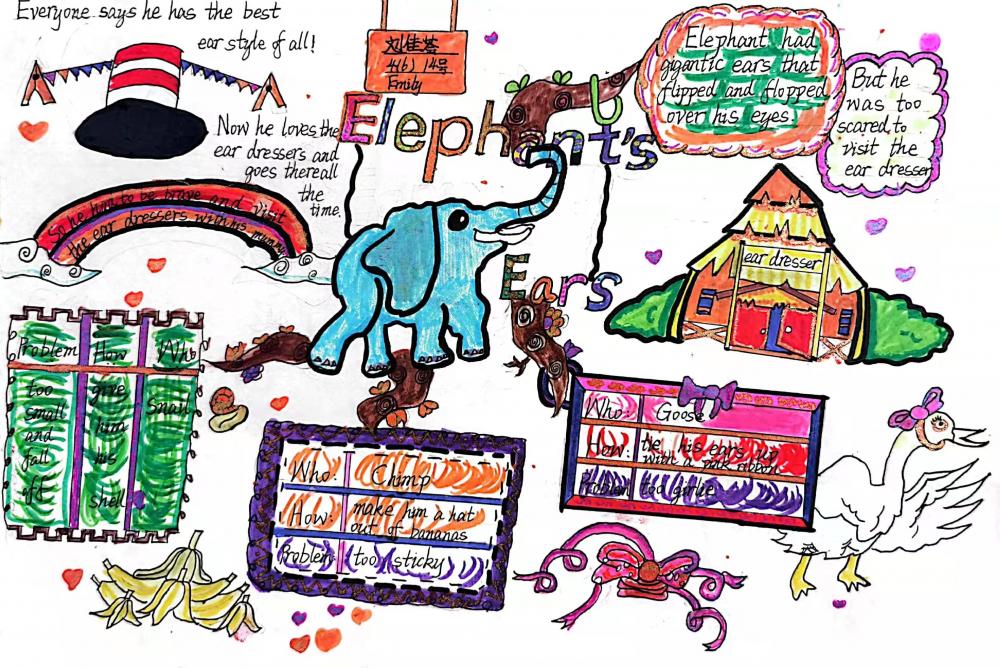 Everyone says he has the best
ear style of all!
4(6) 14号
Emily
Elephant's
Ears
Elephant had
gigantic ears that
flipped and flopped
over his eyes.
But he
was too
scared to
visit the
ear dresser
Now he loves the
ear dressers and
goes there all
the
time.
So he has to be brave and visit
the ear dressers with his mummy
ear dresser
Problem How Who
too give Snail
small him
and his
fall shell
off
Who: Chimp
How: make him a hat
out of bananas
Problem too sticky
Who: Goose
How: tie his ears up
with a pink ribbon
Problem too girlie